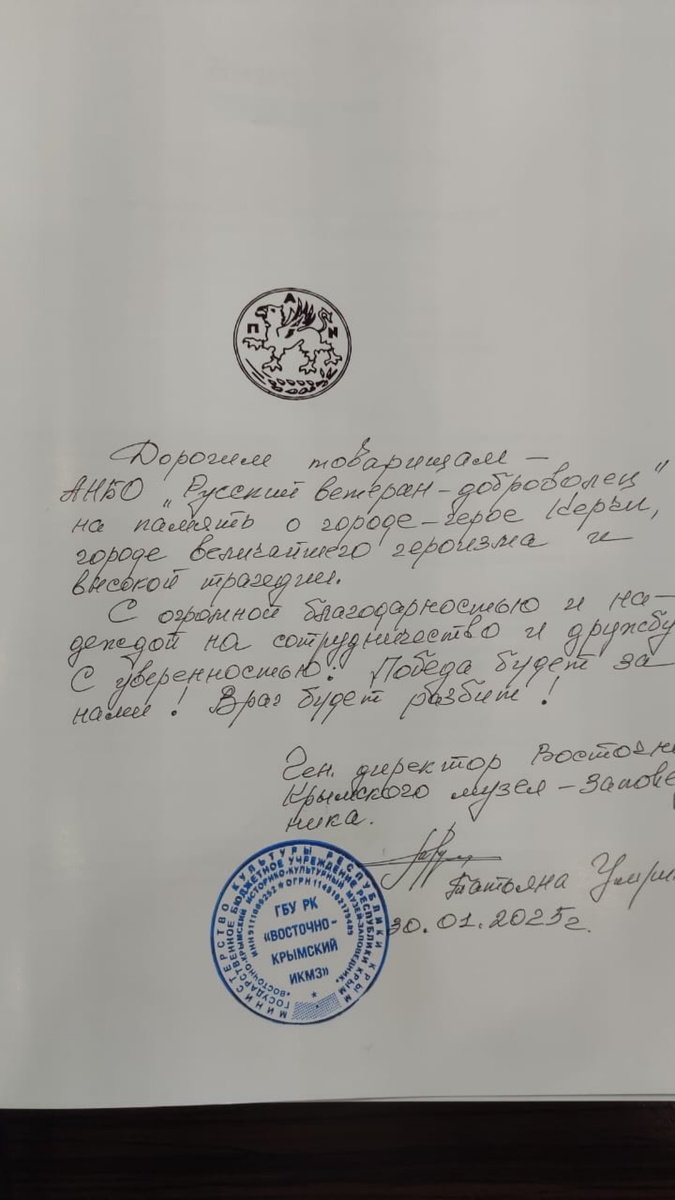 П А Н
Дорогим товарищам –
АНБО „Русский ветеран-доброволец"
на память о городе-герое Керчи,
городе величайшего героизма и
высокой трагедии.
С огромной благодарностью и на-
деждой на сотрудничество и дружбу
С уверенностью: Победа будет за
нами! Враг будет разбит!
Ген. директор
Крымского музея-
ника.
Татьяна
30.01.2025г.
МИНИСТЕРСТВО КУЛЬТУРЫ РЕСПУБЛИКИ КРЫМ
ГОСУДАРСТВЕННОЕ БЮДЖЕТНОЕ УЧРЕЖДЕНИЕ РЕСПУБЛИКИ КРЫМ
«ВОСТОЧНО-КРЫМСКИЙ ИСТОРИКО-КУЛЬТУРНЫЙ МУЗЕЙ-ЗАПОВЕДНИК»
ГБУ РК
«ВОСТОЧНО-
КРЫМСКИЙ
ИКМЗ»